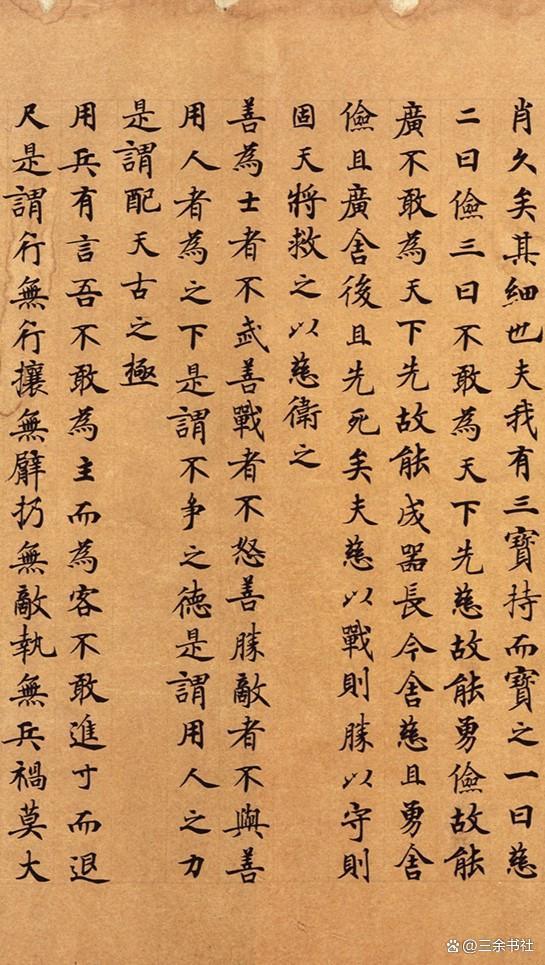 肖久矣其細也夫我有三寶持而寶之一曰慈
二曰儉三曰不敢為天下先慈故能勇儉故能
廣不敢為天下先故能成器長今舍慈且勇舍
儉且廣舍後且先死矣夫慈以戰則勝以守則
固天將救之以慈衛之
善為士者不武善戰者不怒善勝敵者不與善
用人者為之下是謂不争之德是謂用人之力
是謂配天古之極
用兵有言吾不敢為主而為客不敢進寸而退
尺是謂行無行攘無臂扔無敵執無兵禍莫大
@三余书社